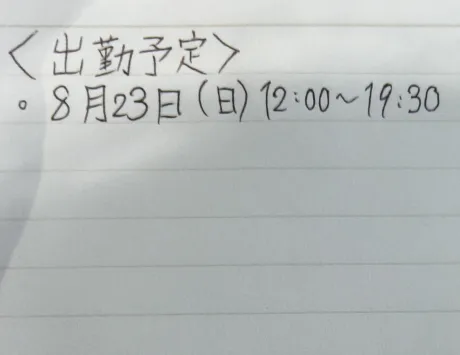 〈出勤予定〉
。8月23日(日)12:00~19:30